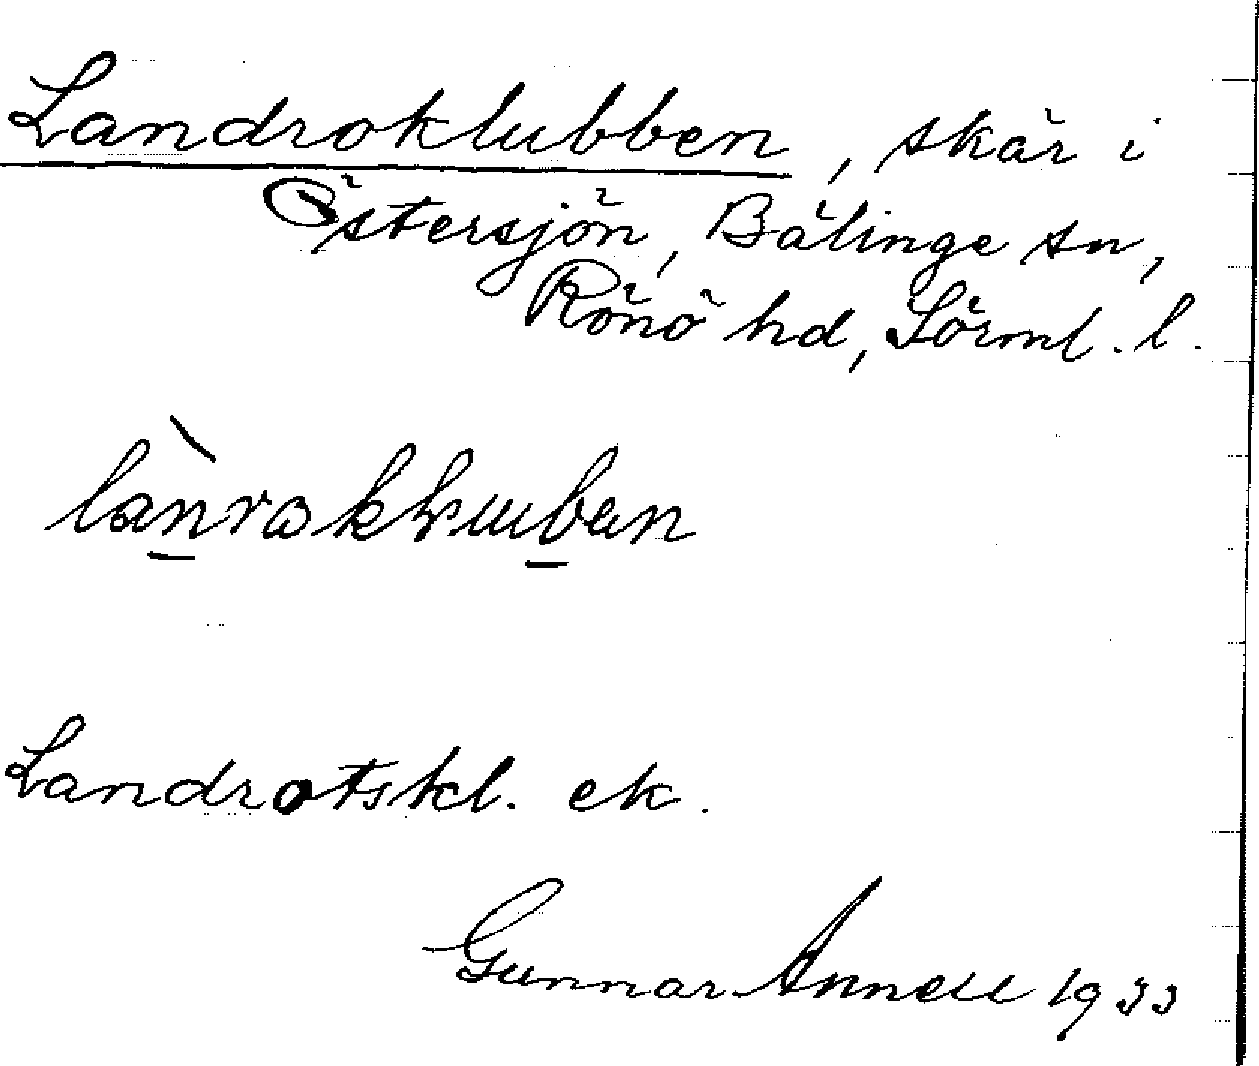 Landroklubben, skär i
Östersjön, Bälinge sn,
Rönö hd, Sörml. l.
lànrokkluban
Landrotskl. ek.
Gunnar Annell 1933